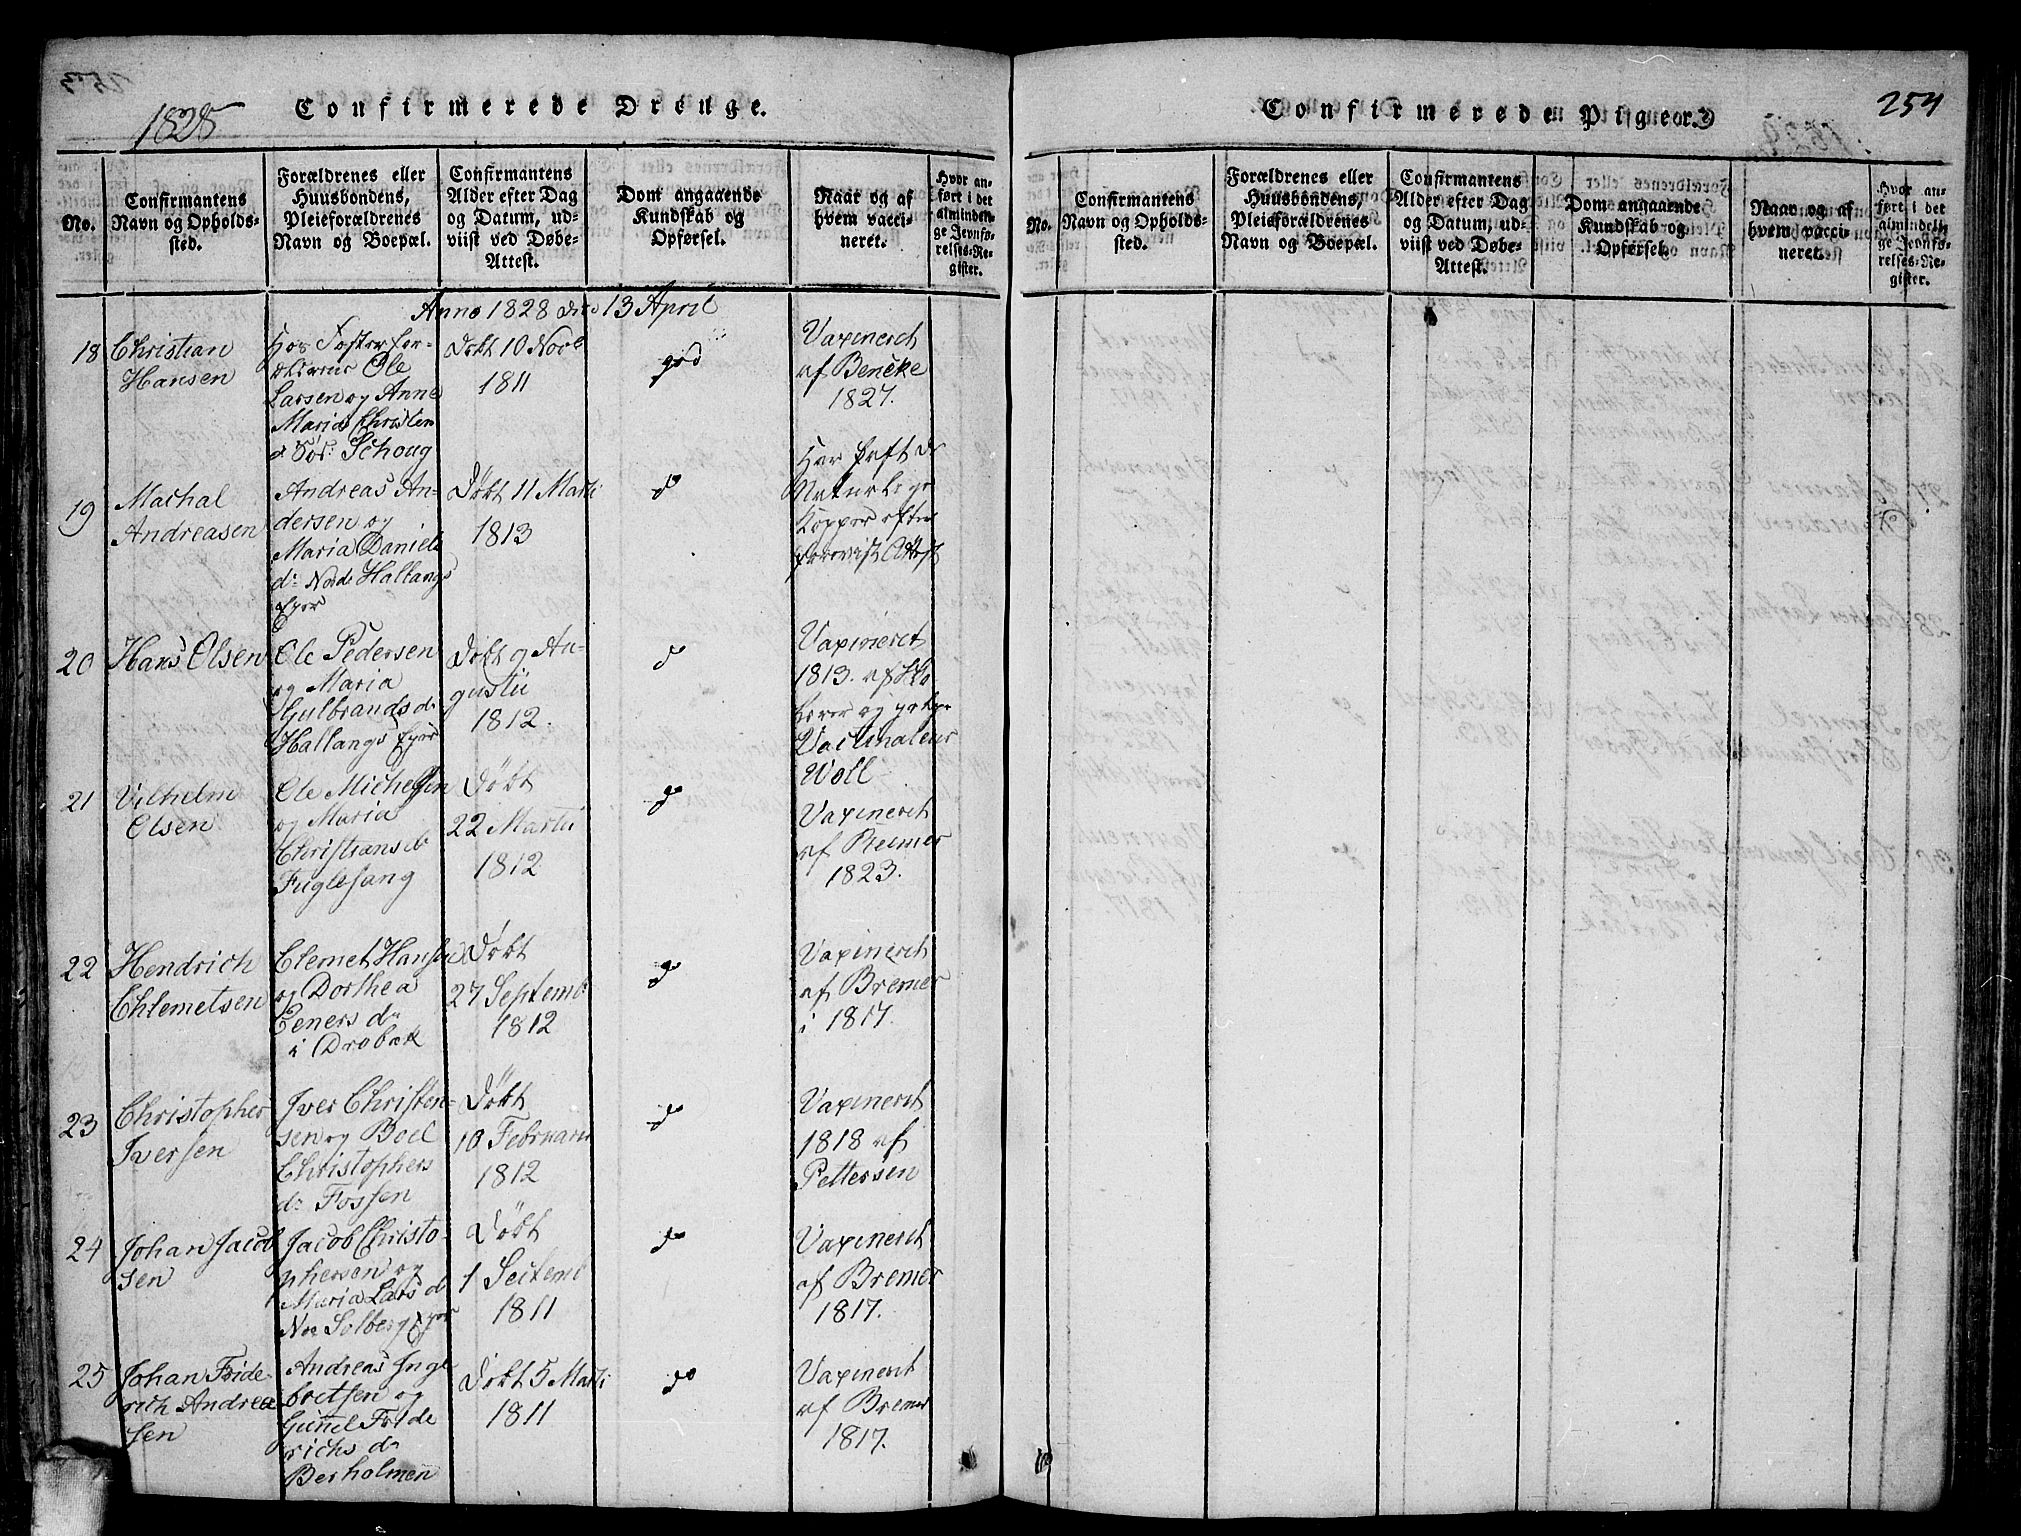 1828
Confirmerede Drenge.
No.
Confirmantens
Navn og Opholds-
sted.
Forældrenes eller
Huusbondens,
Pleieforældrenes
Navn og Boepæl.
Confirmantens
Alder efter Dag
og Datum, ud-
viist ved Døbe-
Attest.
Dom angaaende
Kundskab og
Opførsel.
Naar og af
hvem vacci-
neret.
Hvor an-
ført i det
almindeli-
ge Jevnfø-
relses-Re-
gister.
Anno 1828 den 13 April
18
Christian
Hansen
Hos Fosterfor-
Ole
Larsen og Anne
Maria Christen
d: Schoug
Døbt 10 Novb
1811
god
Vaxineret
af Beneke
1827.
19
Machal
Andreasen
Andreas An-
dersen og
Maria Daniels
d: Nordr Hallangs
Eyer
Døbt 11 Marti
1813
do
Har haft de
Naturlige
Kopper efter
Attest
20
Hans Olsen
Ole Pedersen
og Maria
Gulbrands d:
Hallangs Eyer
Døbt 9 Au-
gustii
1812.
do
Vaxineret
1813. af
og
Vactinateur
Woll
21
Vilhelm
Olsen
Ole Michelsen
og Maria
Christians d:
Fuglesang
Døbt
22 Martii
1812
do
Vaxineret
af Bremer
1823.
22
Hendrich
Chlemetsen
Clemet Hansen
og Dorthea
Eeners d:
i Drøbak
Døbt
27 Septemb
1812
do
Vaxineret
af Bremer
i 1817.
23
Christopher
Iversen
Iver Christen-
sen og Boel
Christophers
d: Fossen
Døbt
10 Februarii
1812
do
Vaxineret
1818 af
Pettersen
24
Johan Jacob
sen
Jacob Christo-
phersen og
Maria Lars d:
Nor Solberg Eyer
Døbt
1 Sebtemb
1811
do
Vaxineret
af Bremer
1817.
25
Johan Fride-
rich Andrea
sen
Andreas Inge
bretsen og
Gunnel Fride
richs d:
Berholmen
Døbt 5 Marti
1811
do
Vaxineret
af Bremer
1817.
Confirmerede Piger.
254
No.
Confirmantens
Navn og Opholds-
sted.
Forældrenes eller
Huusbondens,
Pleieforældrenes
Navn og Boepæl.
Confirmantens
Alder efter Dag
og Datum, ud-
viist ved Døbe-
Attest.
Dom angaaende
Kundskab og
Opførsel.
Naar og af
hvem vacci-
neret.
Hvor an-
ført i det
almindeli-
ge Jevnfø-
relses-Re-
gister.